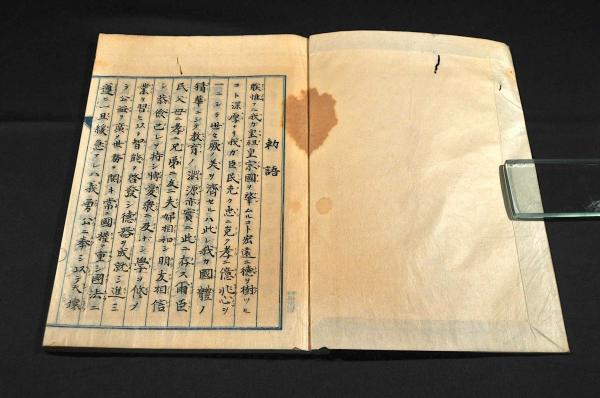 勅語
朕惟フニ我ガ皇祖皇宗國ヲ肇ムルコト宏遠ニ德ヲ樹ツル
コト深厚ナリ我ガ臣民克ク忠ニ克ク孝ニ億兆心ヲ
一ニシテ世世厥ノ美ヲ濟セルハ此レ我ガ國體ノ
精華ニシテ教育ノ淵源亦實ニ此ニ存ス爾臣
民父母ニ孝ニ兄弟ニ友ニ夫婦相和シ朋友相信
シ恭儉己レヲ持シ博愛衆ニ及ボシ學ヲ修メ
業ヲ習ヒ以テ智能ヲ啓發シ德器ヲ成就シ進ン
デ公益ヲ廣メ世務ヲ開キ常ニ國憲ヲ重ジ國法ニ
遵ヒ一旦緩急アレバ義勇公ニ奉ジ以テ天壤